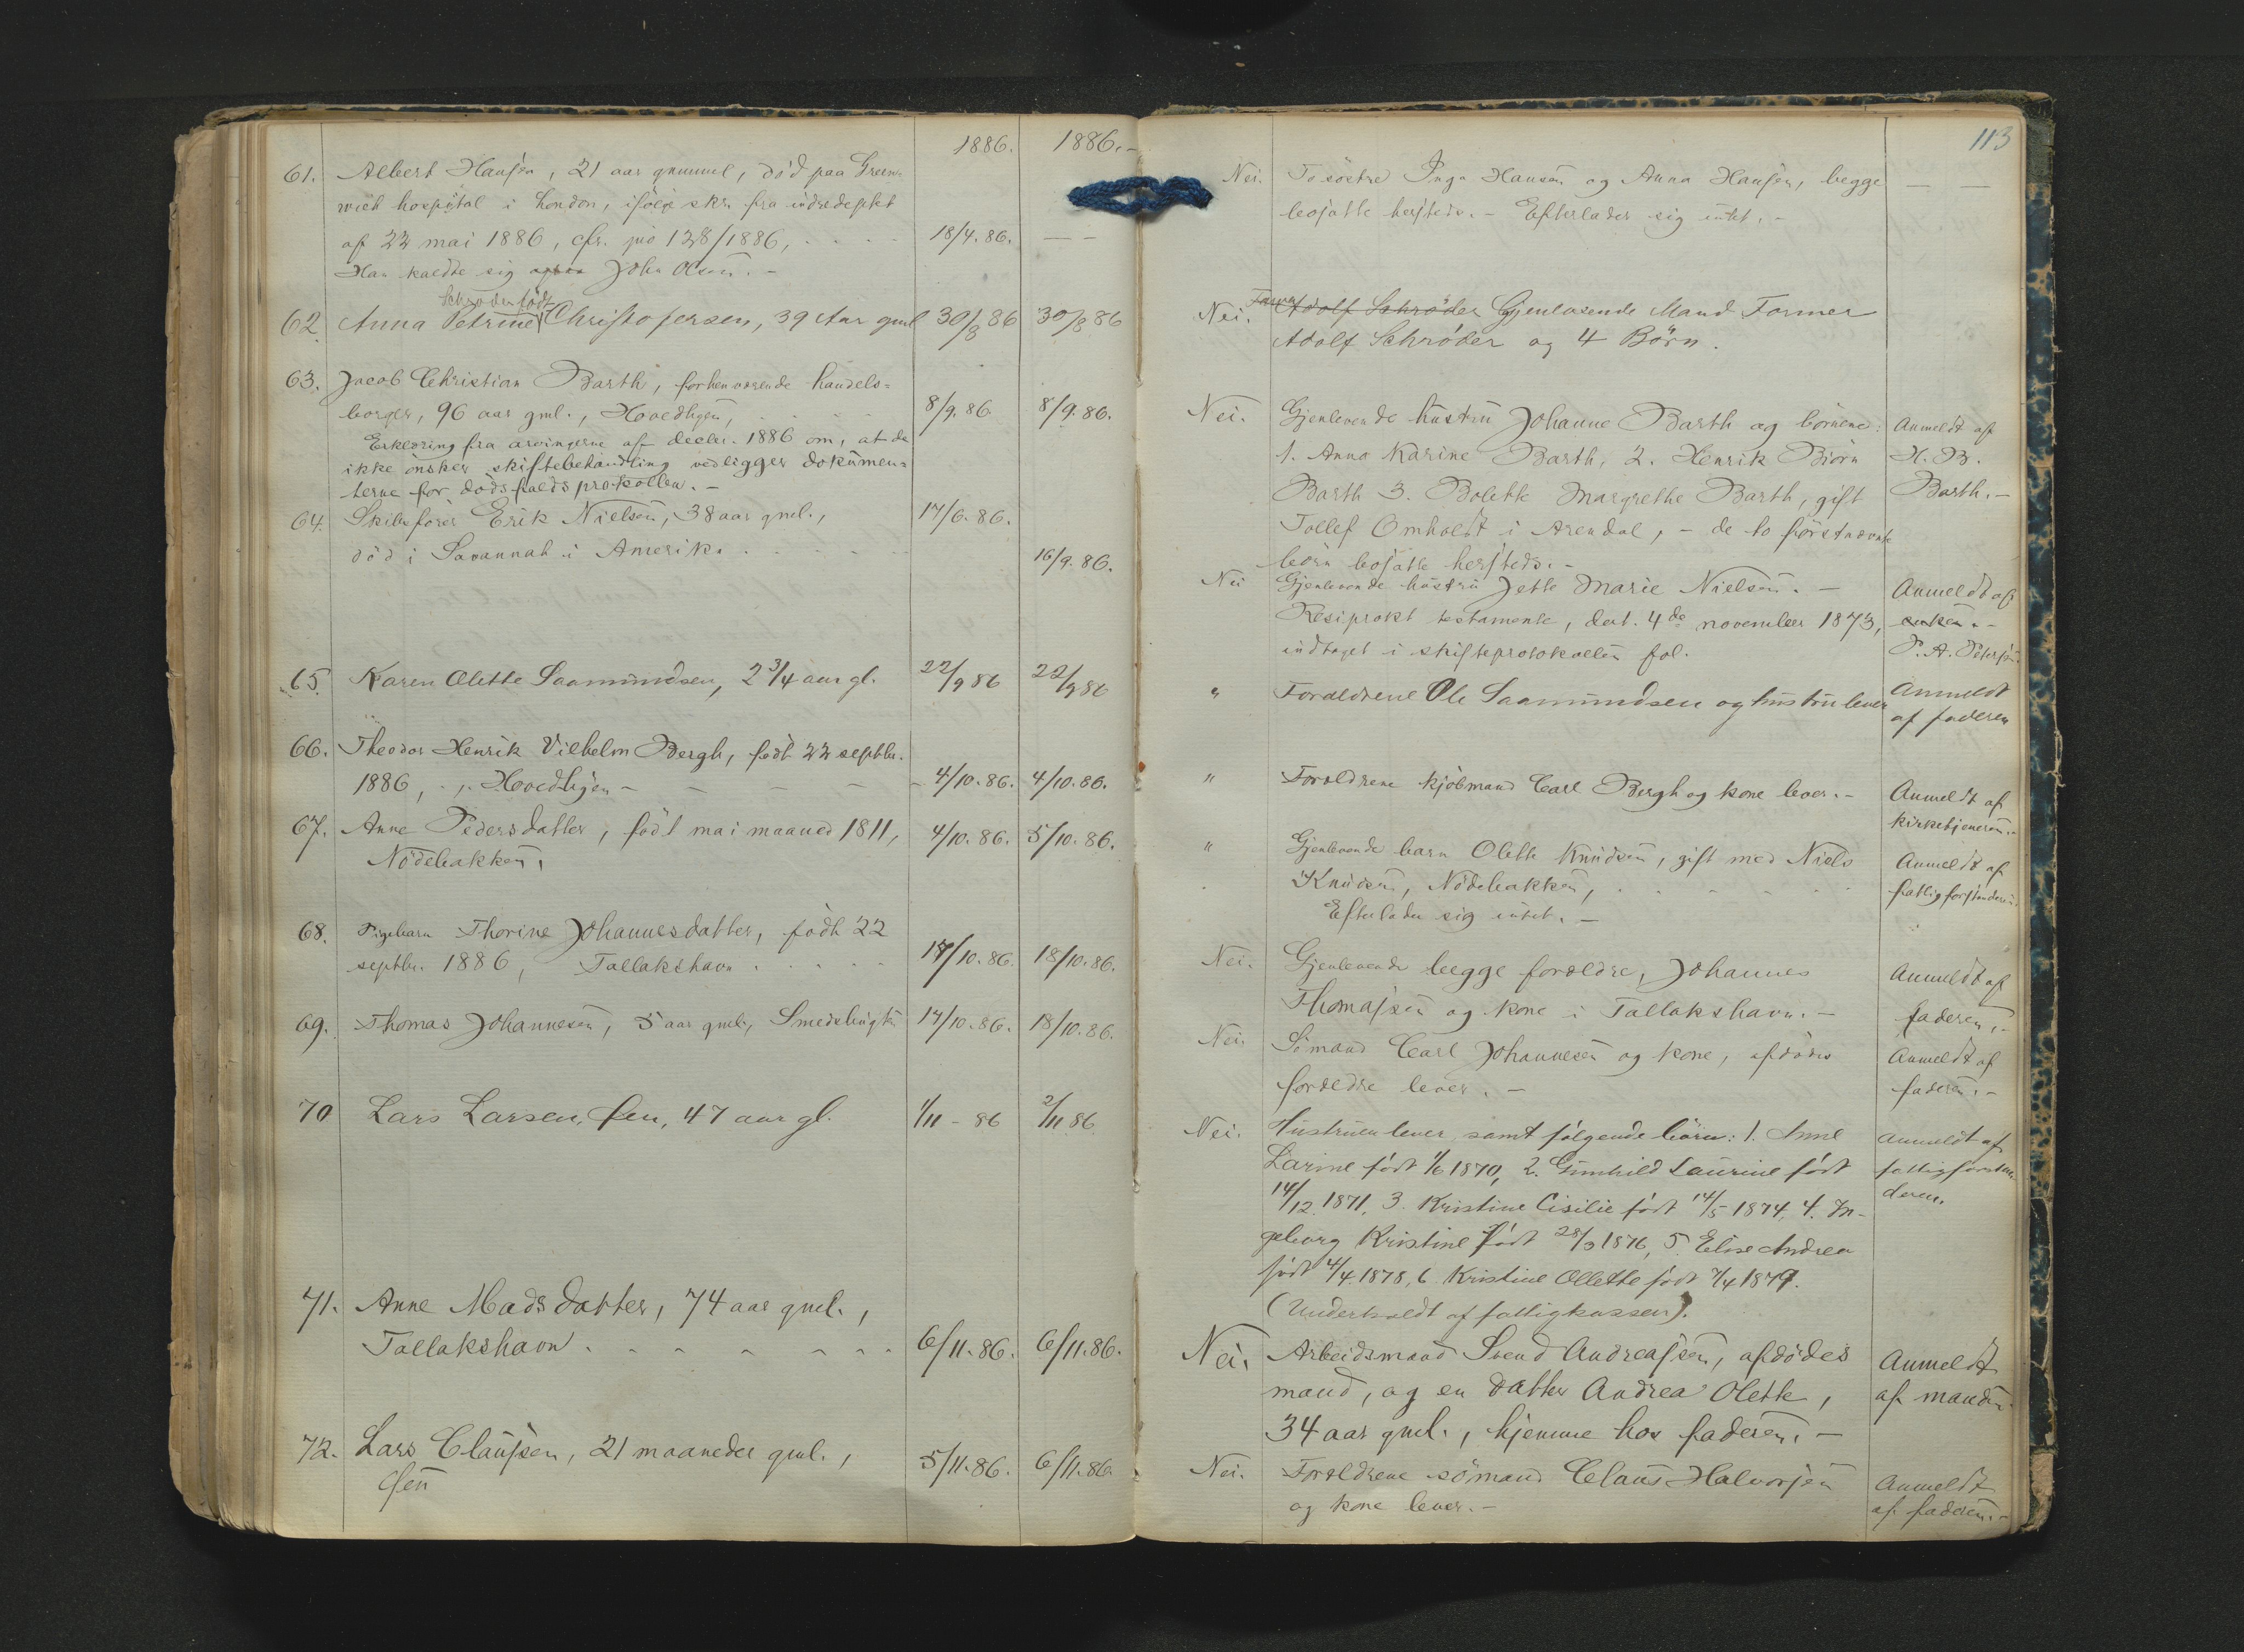 1886. 1886.
61. Albert Hansen, 21 aar gammel, död paa Green-
wich hospital i London, ifölge skr. fra indredeptet
af 22 mai 1886, cfr. pro 128/1886, 18/4. 86. — —
Han kaldte sig John Olsen. –
Schröder födt
62. Anna Petrine Christofersen, 39 Aar gml 30/8 86 30/8 86
63. Jacob Christian Barth, forhenværende handels-
borger, 96 aar gml., Hovedbyen, 8/9. 86. 8/9. 86.
Erklæring fra arvingerne af decbr. 1886 om, at de
ikke önsker skiftebehandling vedligger dokumen-
terne for dödsfaldsprotokollen. –
64. Skibsförer Erik Nielsen, 38 aar gml., 17/6. 86.
död i Savannah i Amerika 16/9. 86.
65. Karen Olette Saamundsen, 2 3/4 aar gl. 22/9 86 22/9 86
66. Theodor Henrik Vilhelm Bergh, födt 22 septbr.
1886, Hovedbyen – 4/10. 86. 4/10. 86.
67. Anne Pedersdatter, födt mai maaned 1811, 4/10. 86. 5/10. 86.
Nödebakken,
68. Pigebarn Thorine Johannesdatter, födt 22
septbr. 1886, Tallakshavn 17/10. 86. 18/10. 86.
69. Thomas Johannesen, 5 aar gml., Smedsbugten 17/10. 86. 18/10. 86.
70 Lars Larsen, Øen, 47 aar gl. 1/11 - 86 2/11 86
71. Anne Madsdatter, 74 aar gml.,
Tallakshavn 6/11. 86. 6/11. 86.
72. Lars Clausen, 21 maaneder gml.,
Øen 5/11. 86. 6/11. 86.
113
Nei. To söstre Inga Hansen og Anna Hansen, begge — —
bosatte hersteds. – Efterlader sig intet. –
Nei. Adolf Schröder Gjenlevende Mand Former
Adolf Schröder og 4 Börn.
Nei. Gjenlevende hustru Johanne Barth og börnene: Anmeldt af
1. Anna Karine Barth, 2. Henrik Björn H. B.
Barth 3. Bolette Margrethe Barth, gift Barth. –
Tollef Omholdt i Arendal, – de to förstnævnte
börn bosatte hersteds. –
Nei Gjenlevende hustru Jette Marie Nielsen. – Anmeldt af
Resiprokt testamente, dat. 4de november 1873, enken. –
indtaget i skifteprotokollen fol. P. A. Petersen
" Forældrene Ole Saamundsen og hustru lever Anmeldt
af faderen
" Forældrene kjöbmand Carl Bergh og kone lever. – Anmeldt af
kirketjeneren. –
" Gjenlevende barn Olette Knudsen, gift med Niels Anmeldt af
Knudsen, Nödebakken, fattigforstanderen.
Efterlader sig intet. –
Nei. Gjenlevende begge forældre, Johannes Anmeldt af
Thomassen og kone i Tallakshavn. – faderen. –
Nei. Sömand Carl Johannesen og kone, afdödes Anmeldt af
forældre lever. – faderen. –
Nei. Hustruen lever samt fölgende börn: 1. Anne Anmeldt af
Larine födt 1/6 1870, 2. Gunhild Laurine födt fattigforstan
14/12. 1871, 3. Kristine Cisilie födt 14/5 1874, 4. In- deren.
geborg Kristine födt 28/3 1876, 5. Elise Andrea
födt 4/4. 1878, 6 Kristine Ollette födt 7/4 1879.
(Underholdt af fattigkassen).
Nei. Arbeidsmand Svend Andreassen, afdödes Anmeldt
mand, og en datter Andrea Olette, af manden.
34 aar gml., hjemme hos faderen. –
Nei. Forældrene sömand Claus Halvorsen Anmeldt
og kone lever. – af faderen. –